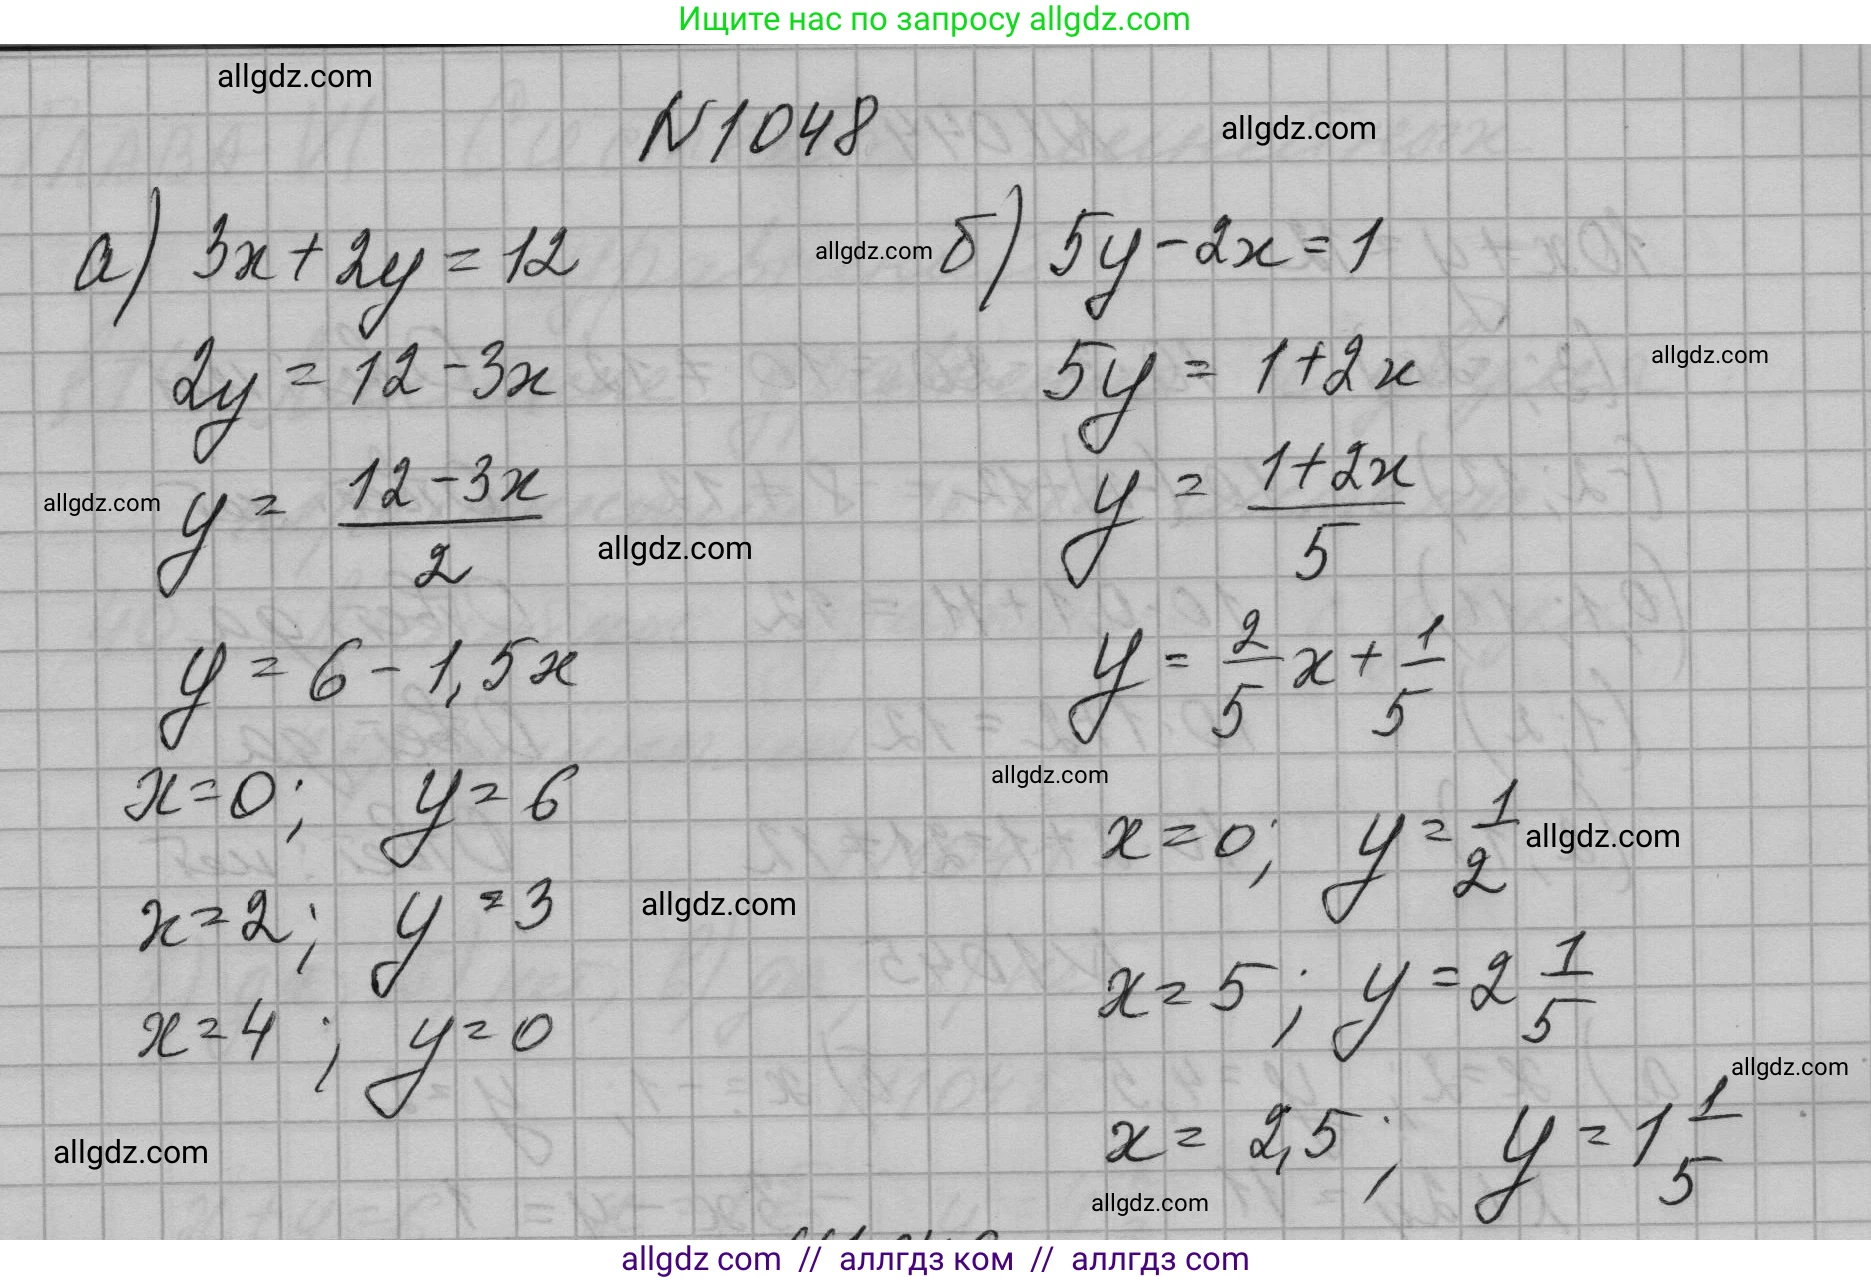 Ищите нас по запросу allgdz.com
allgdz.com
N1048
allgdz.com
а) 3x + 2y = 12
2y = 12 - 3x
y = (12 - 3x)/2
y = 6 - 1,5x
x = 0; y = 6
x = 2; y = 3
x = 4; y = 0
allgdz.com
allgdz.com
allgdz.com
allgdz.com
allgdz.com
б) 5y - 2x = 1
5y = 1 + 2x
y = (1 + 2x)/5
y = 2/5 x + 1/5
x = 0; y = 1/2
x = 5; y = 2 1/5
x = 2,5; y = 1 1/5
allgdz.com
allgdz.com
allgdz.com
allgdz.com
allgdz.com
allgdz com // аллгдз ком // аллгдз com